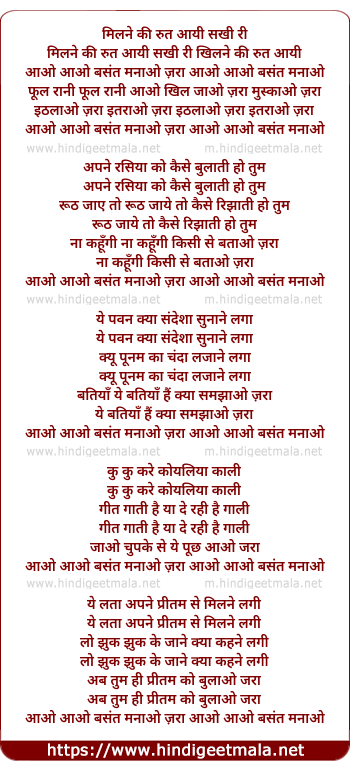 मिलने की रुत आयी सखी री
मिलने की रुत आयी सखी री खिलने की रुत आयी
आओ आओ बसंत मनाओ ज़रा आओ आओ बसंत मनाओ
फूल रानी फूल रानी आओ खिल जाओ ज़रा मुस्काओ ज़रा
इठलाओ ज़रा इतराओ ज़रा इठलाओ ज़रा इतराओ ज़रा
आओ आओ बसंत मनाओ ज़रा आओ आओ बसंत मनाओ
www.hindigeetmala.net m.hindigeetmala.net
अपने रसिया को कैसे बुलाती हो तुम
अपने रसिया को कैसे बुलाती हो तुम
रूठ जाए तो रूठ जाये तो कैसे रिझाती हो तुम
रूठ जाये तो कैसे रिझाती हो तुम
ना कहूँगी ना कहूँगी किसी से बताओ ज़रा
ना कहूँगी किसी से बताओ ज़रा
आओ आओ बसंत मनाओ ज़रा आओ आओ बसंत मनाओ
www.hindigeetmala.net m.hindigeetmala.net
ये पवन क्या संदेशा सुनाने लगा
ये पवन क्या संदेशा सुनाने लगा
क्यू पूनम का चंदा लजाने लगा
क्यू पूनम का चंदा लजाने लगा
बतियाँ ये बतियाँ हैं क्या समझाओ ज़रा
ये बतियाँ हैं क्या समझाओ ज़रा
आओ आओ बसंत मनाओ ज़रा आओ आओ बसंत मनाओ
www.hindigeetmala.net m.hindigeetmala.net
कु कु करे कोयलिया काली
कु कु करे कोयलिया काली
गीत गाती है या दे रही है गाली
गीत गाती है या दे रही है गाली
जाओ चुपके से ये पूछ आओ जरा
आओ आओ बसंत मनाओ ज़रा आओ आओ बसंत मनाओ
www.hindigeetmala.net m.hindigeetmala.net
ये लता अपने प्रीतम से मिलने लगी
ये लता अपने प्रीतम से मिलने लगी
लो झुक झुक के जाने क्या कहने लगी
लो झुक झुक के जाने क्या कहने लगी
अब तुम ही प्रीतम को बुलाओ जरा
अब तुम ही प्रीतम को बुलाओ जरा
आओ आओ बसंत मनाओ ज़रा आओ आओ बसंत मनाओ
https://www.hindigeetmala.net